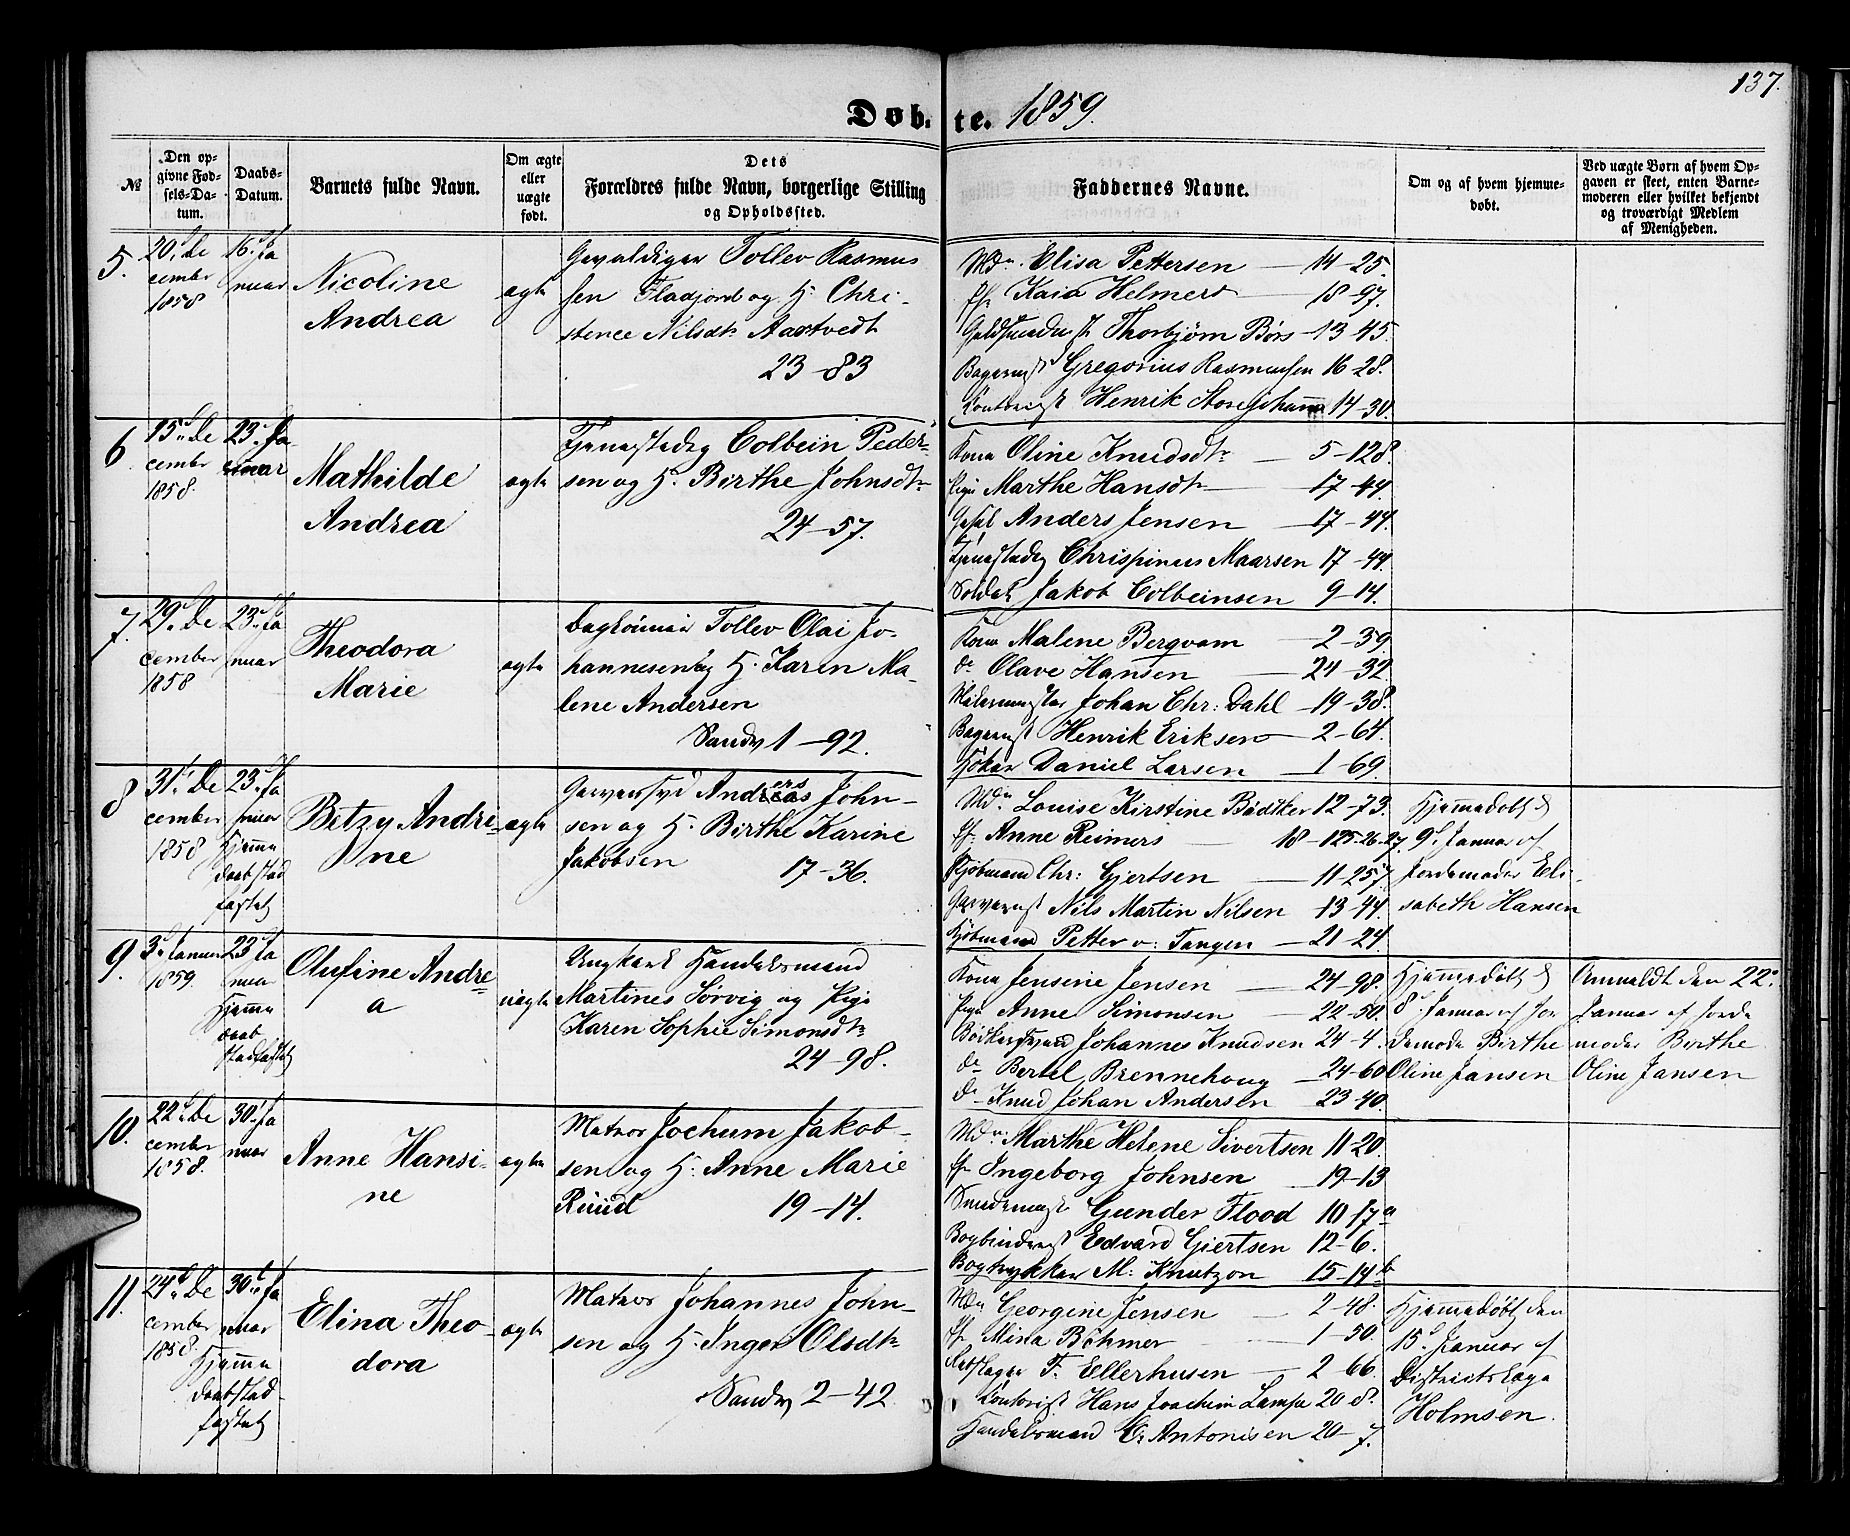 137.
Døbte. 1859.
№
Den opgivne Fødsels-Datum.
Daabs-Datum.
Barnets fulde Navn.
Om ægte eller uægte født.
Dets Forældres fulde Navn, borgerlige Stilling og Opholdssted.
Faddernes Navne.
Om og af hvem hjemmedøbt.
Ved uægte Børn af hvem Opgaven er skeet, enten Barnemoderen eller hvilket bekjendt og troværdigt Medlem af Menigheden.
5.
20d De
cember
1858
16d Ja
nuar
Nicoline
Andrea
ægte
Gevaldiger Tollev Rasmus
sen Fladjord og H. Chri-
stence Nilsdtr Aastvedt
23-83
Mdm Elisa Pettersen - 14-25.
Kaia Helmers - 18-97.
Guldsmedmst Thorbjørn Børs - 13-45.
Bagermst Gregorius Rasmussen 16-28.
Kontorist Henrik Storejohann 14-30.
6.
15d De
cember
1858.
23d Ja
nuar
Mathilde
Andrea
ægte
Tjenestedg Colbein Peder-
sen og H. Birthe Johnsdtr
24-57.
Kone Oline Knudsdtr - 5-128.
Pige Marthe Hansdtr - 17-44.
Anders Jensen - 17-44.
Tjenestedg Chrispinus Maarsen 17-44.
Soldat Jakob Colbeinsen 9-14.
7.
29d De
cember
1858
23d Ja
nuar
Theodora
Marie
ægte
Tollev Olai Jo-
hannesen og H. Karen Ma-
lene Andersen
Sandv 1-92.
Kone Malene Bergvam - 2-39.
do Olave Hansen - 24-32.
Malermester Johan Chr: Dahl - 19-38.
Bagermst Henrik Eriksen - 2-64.
Daniel Larsen - 1-69.
8
31d De
cember
1858
23d Ja
nuar
Hjemme
daab stad
fæstet
Betzy Andri-
ne
ægte
Garversvd Anders John-
sen og H. Birthe Karine
Jakobsen 17-36.
Mdm Louise Kirstine Bødtker 12-73.
Anne Reimers - 18-125-26-27.
Kjøbmand Chr: Gjertsen - 11-257.
Garvermst Nils Martin Nilsen - 13-44.
Kjøbmand Petter v: Tangen - 21-24.
Hjemmedøbt d
9d Januar af
Jordemoder Eli-
sabeth Hansen
9.
3d Januar
1859.
23d Ja
nuar
Hjemme
daab
stadfæstet
Olufine Andre-
a
uægte
Ungkarl Handelsmand
Martines Sørvig og Pige
Karen Sophie Simonsdtr
24-98.
Kone Jensine Jensen - 24-98.
Pige Anne Simonsen - 22-50.
Bødkersvend Johannes Knudsen 24-4.
do Bertel Brennehoug - 24-60
do Knud Johan Andersen 23-40.
Hjemmedøbt d
8d Januar af Jor
demoder Birthe
Oline Jansen
Anmeldt den 22d
Januar af Jorde
moder Birthe
Oline Jansen
10.
22d De
cember
1858.
30d Ja
nuar
Anne Hansi-
ne
ægte
Matros Jochum Jakob-
sen og H. Anne Marie
Rüüd 19-14.
Mdm Marthe Helene Sivertsen 11-20.
Ingeborg Johnsen - 19-13
Smedemst Gunder Flood 10-17a
Bogbindermst Edvard Giertsen 12-6.
Bogtrykker M: Knutzon - 15-14b
11.
24d De
cember
1858.
30d Ja
nuar
Hjemme
daab stad-
fæstet
Elina Theo-
dora
ægte
Matros Johannes John-
sen og H. Inger Olsdtr
Sandv 2-42
Mdm Georgine Jensen - 2-48.
Mina Bøhmer - 1-50.
Rebslager F. Ellerhusen - 2-66.
Kontorist Hans Joachim Lampe 20-8.
Handelsmand C. Antonisen 20-7.
Hjemmedøbt den
15d Januar af
Districtslæge
Holmsen.